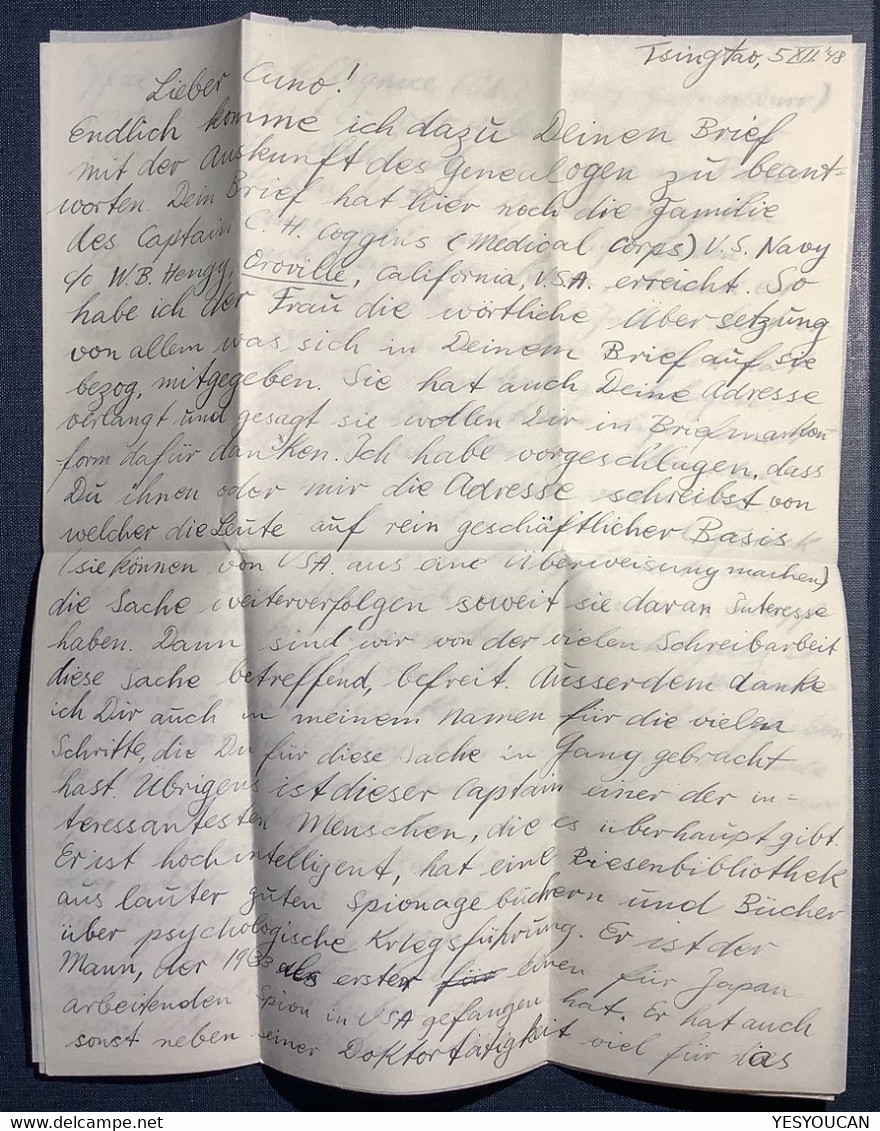 Tsingtao, 5 XII '48
Lieber Cuno!
Endlich komme ich dazu Deinen Brief
mit der Auskunft des Genealogen zu beant=
worten. Dein Brief hat hier noch die Familie
des Captain C. H. Coggins (Medical Corps) U.S. Navy
c/o W.B. Hengy, Oroville, California, U.S.A. erreicht. So
habe ich der Frau die wörtliche Übersetzung
von allem was sich in Deinem Brief auf sie
bezog, mitgegeben. Sie hat auch Deine Adresse
verlangt und gesagt sie wollen Dir in Briefmarken
form dafür danken. Ich habe vorgeschlagen, dass
Du ihnen oder mir die Adresse schreibst von
welcher die Leute auf rein geschäftlicher Basis
(sie können von USA. aus eine Überweisung machen)
die Sache weiterverfolgen soweit sie daran Interesse
haben. Dann sind wir von der vielen Schreibarbeit
diese Sache betreffend, befreit. Ausserdem danke
ich Dir auch in meinem Namen für die vielen
Schritte, die Du für diese Sache in Gang gebracht
hast. Übrigens ist dieser Captain einer der in=
teressantesten Menschen, die es überhaupt gibt.
Er ist hochintelligent, hat eine Riesenbibliothek
aus lauter guten Spionagebüchern und Bücher
über psychologische Kriegsführung. Er ist der
Mann, der 1933 als erster für einen für Japan
arbeitenden Spion in USA gefangen hat. Er hat auch
sonst neben seiner Doktortätigkeit viel für das
YESYOUCAN
delcampe.net